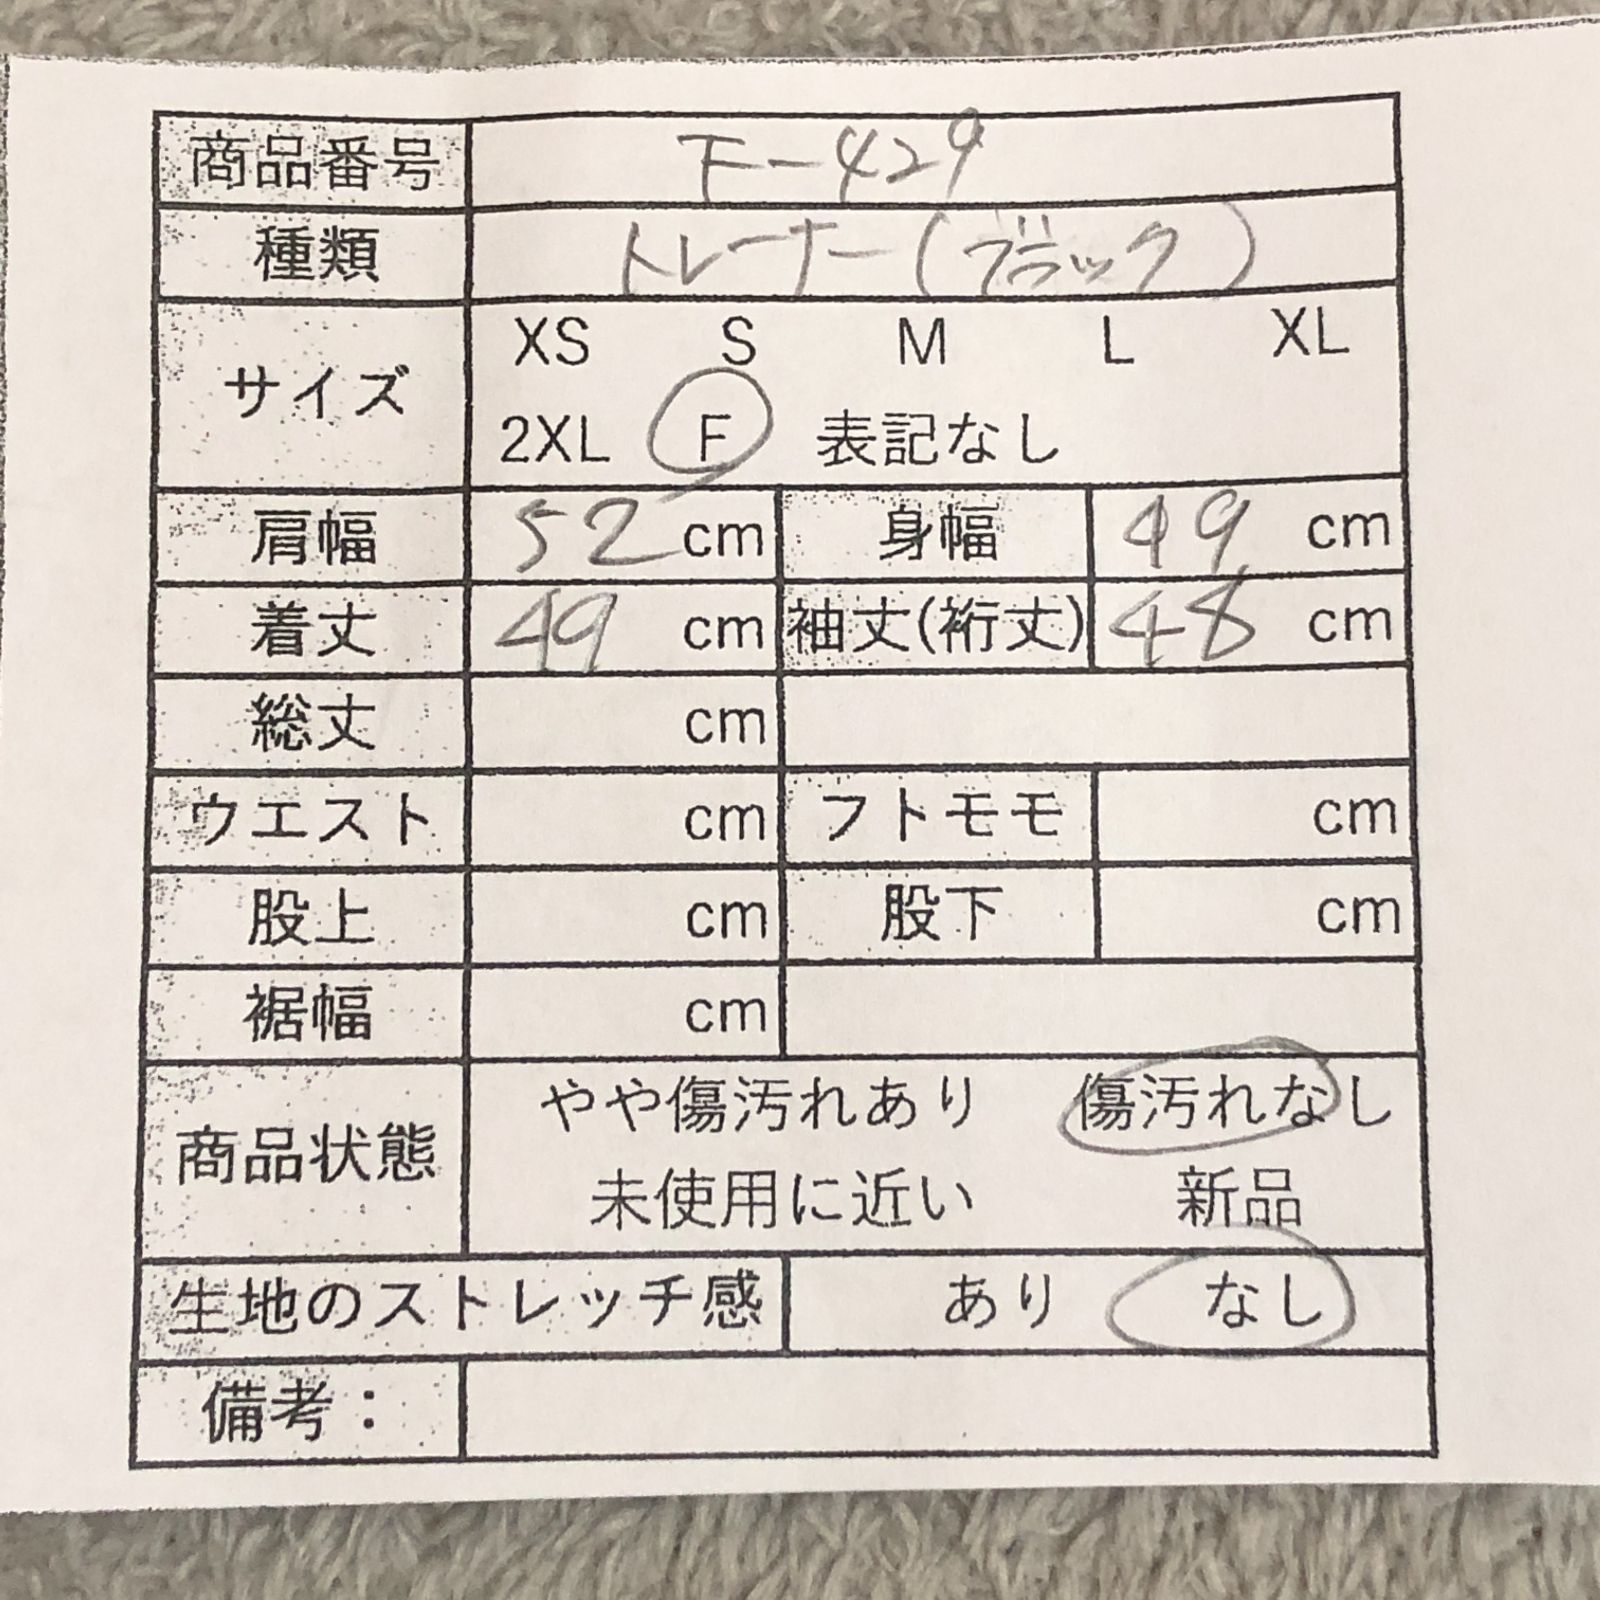 商品番号 F-429
種類 トレーナー(ブラック)
サイズ XS S M L XL
2XL F 表記なし
肩幅 52 cm 身幅 49 cm
着丈 49 cm 袖丈(裄丈) 48 cm
総丈 cm
ウエスト cm フトモモ cm
股上 cm 股下 cm
裾幅 cm
商品状態 やや傷汚れあり 傷汚れなし
未使用に近い 新品
生地のストレッチ感 あり なし
備考：